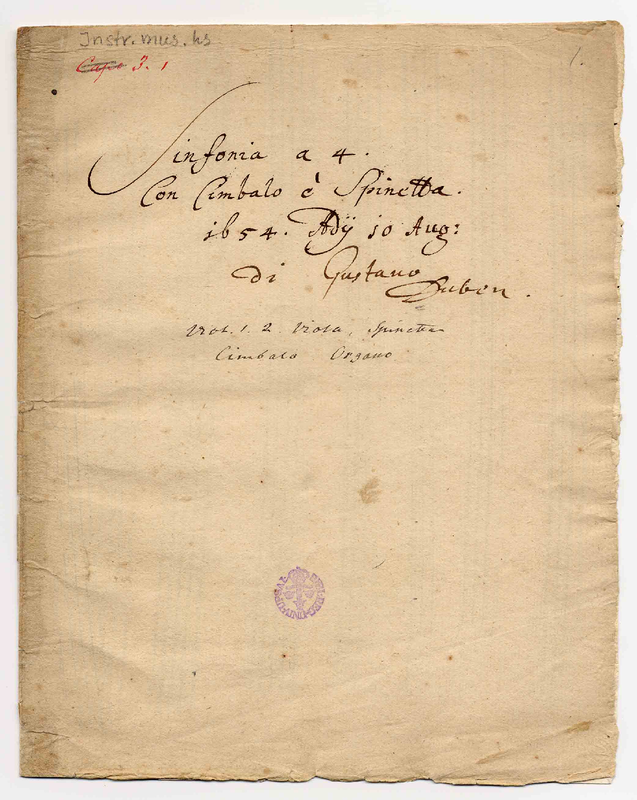 Instr. mus. hs
1.
Caps 3. 1
Sinfonia a 4.
Con Cimbalo è Spinetta.
1654. Adÿ 10 Aug:
di Gustavo
Duben.
Viol. 1. 2 Viola, Spinetta
Cimbalo Organo